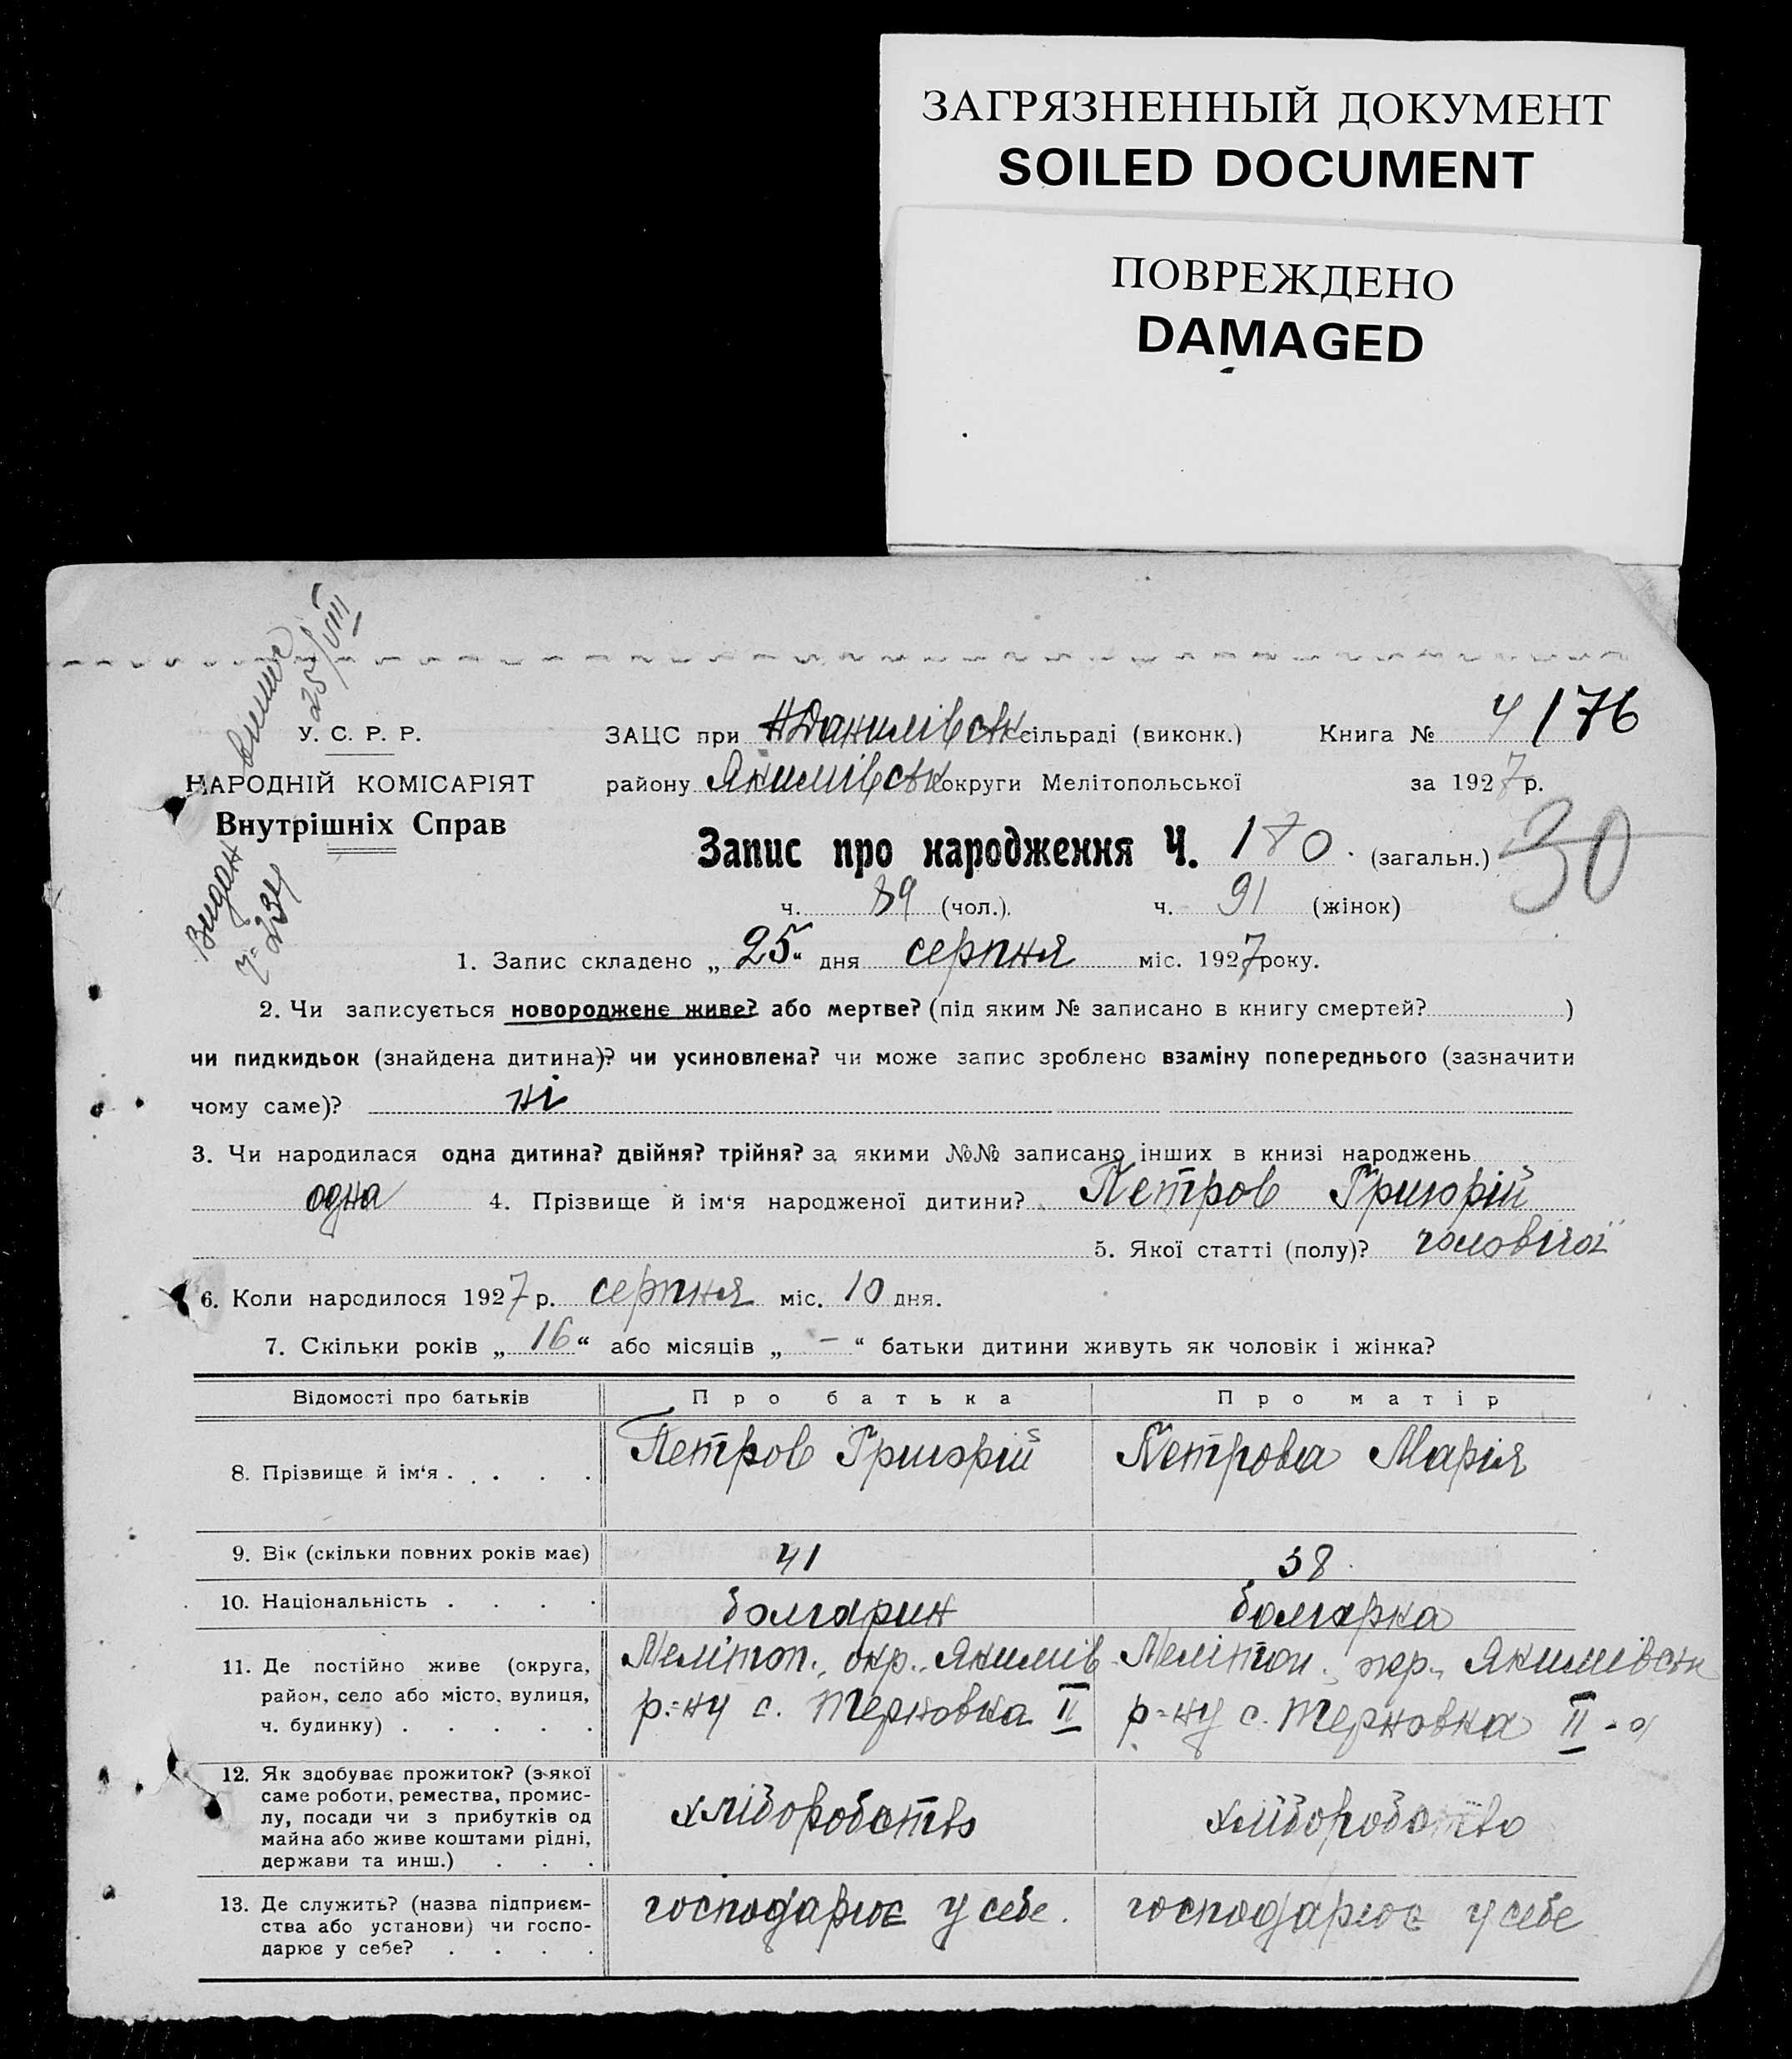 ЗАГРЯЗНЕННЫЙ ДОКУМЕНТ
SOILED DOCUMENT
ПОВРЕЖДЕНО
DAMAGED
Видан ч. 234 25/VIII
У. С. Р. Р.
НАРОДНІЙ КОМІСАРІЯТ
Внутрішніх Справ
ЗАЦС при Н Данилівськ сільраді (виконк.) Книга № 4/76
району Якимівськ округи Мелітопольської за 1927 р.
Запис про народження Ч. 180. (загальн.) 30
ч. 89 (чол.). ч. 91 (жінок)
1. Запис складено „25“ дня серпня міс. 1927 року.
2. Чи записується новороджене живе? або мертве? (під яким № записано в книгу смертей? )
чи пидкидьок (знайдена дитина)? чи усиновлена? чи може запис зроблено взаміну попереднього (зазначити
чому саме)? ні
3. Чи народилася одна дитина? двійня? трійня? за якими №№ записано інших в книзі народжень
одна 4. Прізвище й ім‘я народженої дитини? Петров Григорій
5. Якої статті (полу)? чоловічої
6. Коли народилося 1927 р. серпня міс. 10 дня.
7. Скільки років „16“ або місяців „–“ батьки дитини живуть як чоловік і жінка?
Відомості про батьків Про батька Про матір
8. Прізвище й ім‘я . . . . . Петров Григорій Петрова Марія
9. Вік (скільки повних років має) 41 38
10. Національність . . . . болгарин болгарка
11. Де постійно живе (округа, Мелітоп., окр., Якимів Мелітоп., окр., Якимівськ
район, село або місто, вулиця, р-ну с. Терновка II р-ну с. Терновка II-а
ч. будинку) . . . . .
12. Як здобуває прожиток? (з якої
саме роботи, ремества, промис-
лу, посади чи з прибутків од хліборобство хліборобство
майна або живе коштами рідні,
держави та инш.) . . .
13. Де служить? (назва підприєм- господарює у себе. господарює у себе
ства або установи) чи госпо-
дарює у себе? . . . .